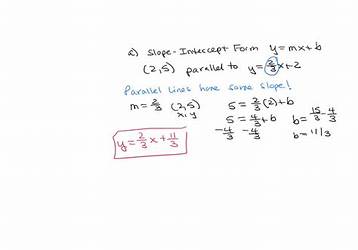 a) Slope-Intercept Form y=mx+b
(2,5) parallel to y=2/3x+2
Parallel lines have same slope!
m=2/3 (2,5) 5=2/3(2)+b
x,y
5=4/3+b b=15/3-4/3
-4/3 -4/3 b=11/3
y=2/3x+11/3